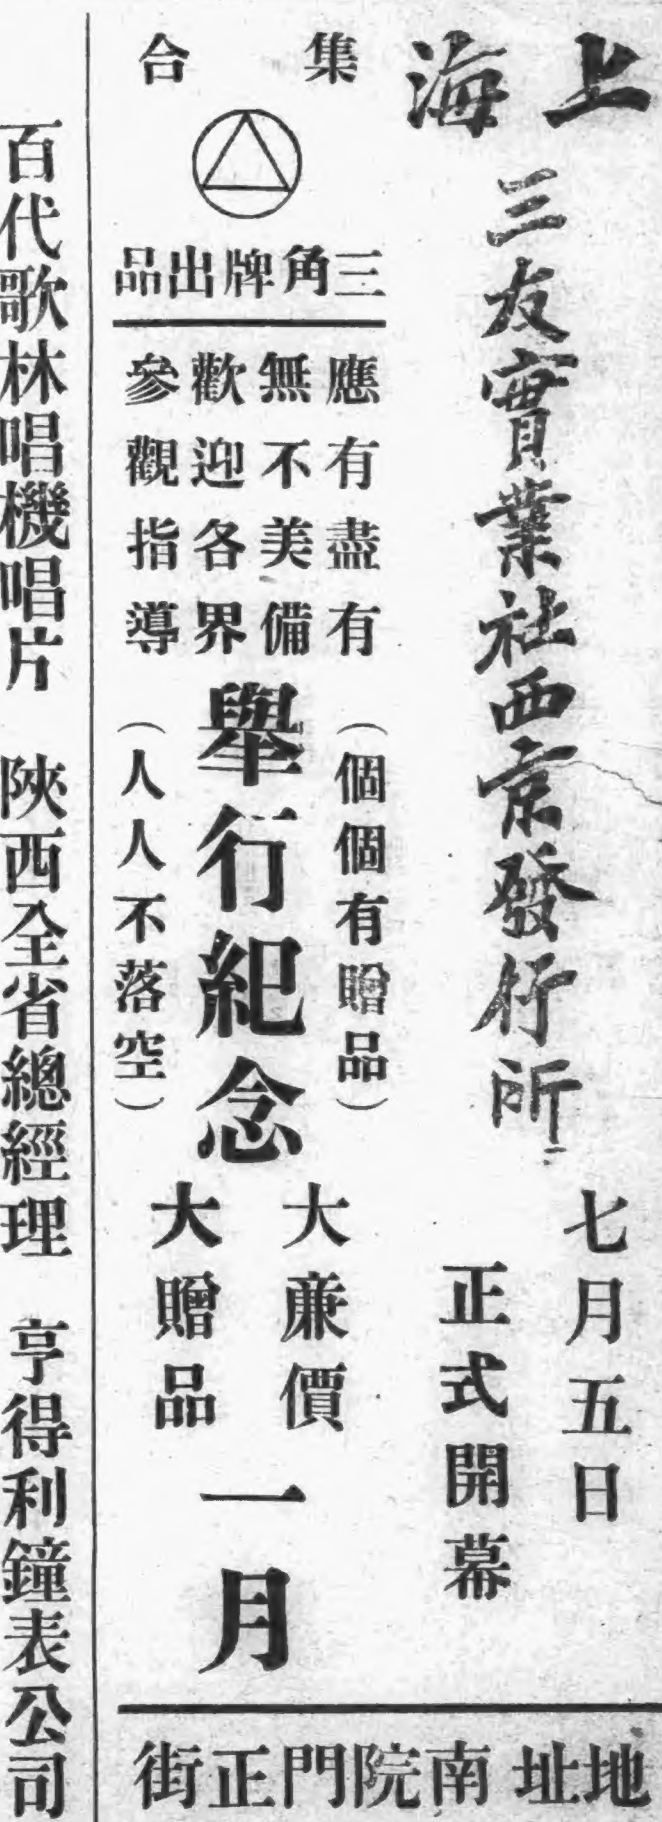 上海
三友實業社西京發行所
七月五日
正式開幕
集合
三角牌出品
應有盡有
無不美備
歡迎各界
參觀指導
(個個有贈品)
舉行紀念
(人人不落空)
大亷價
大贈品
一月
地址 南院門正街
百代歌林唱機唱片 陝西全省總經理 亨得利鐘表公司